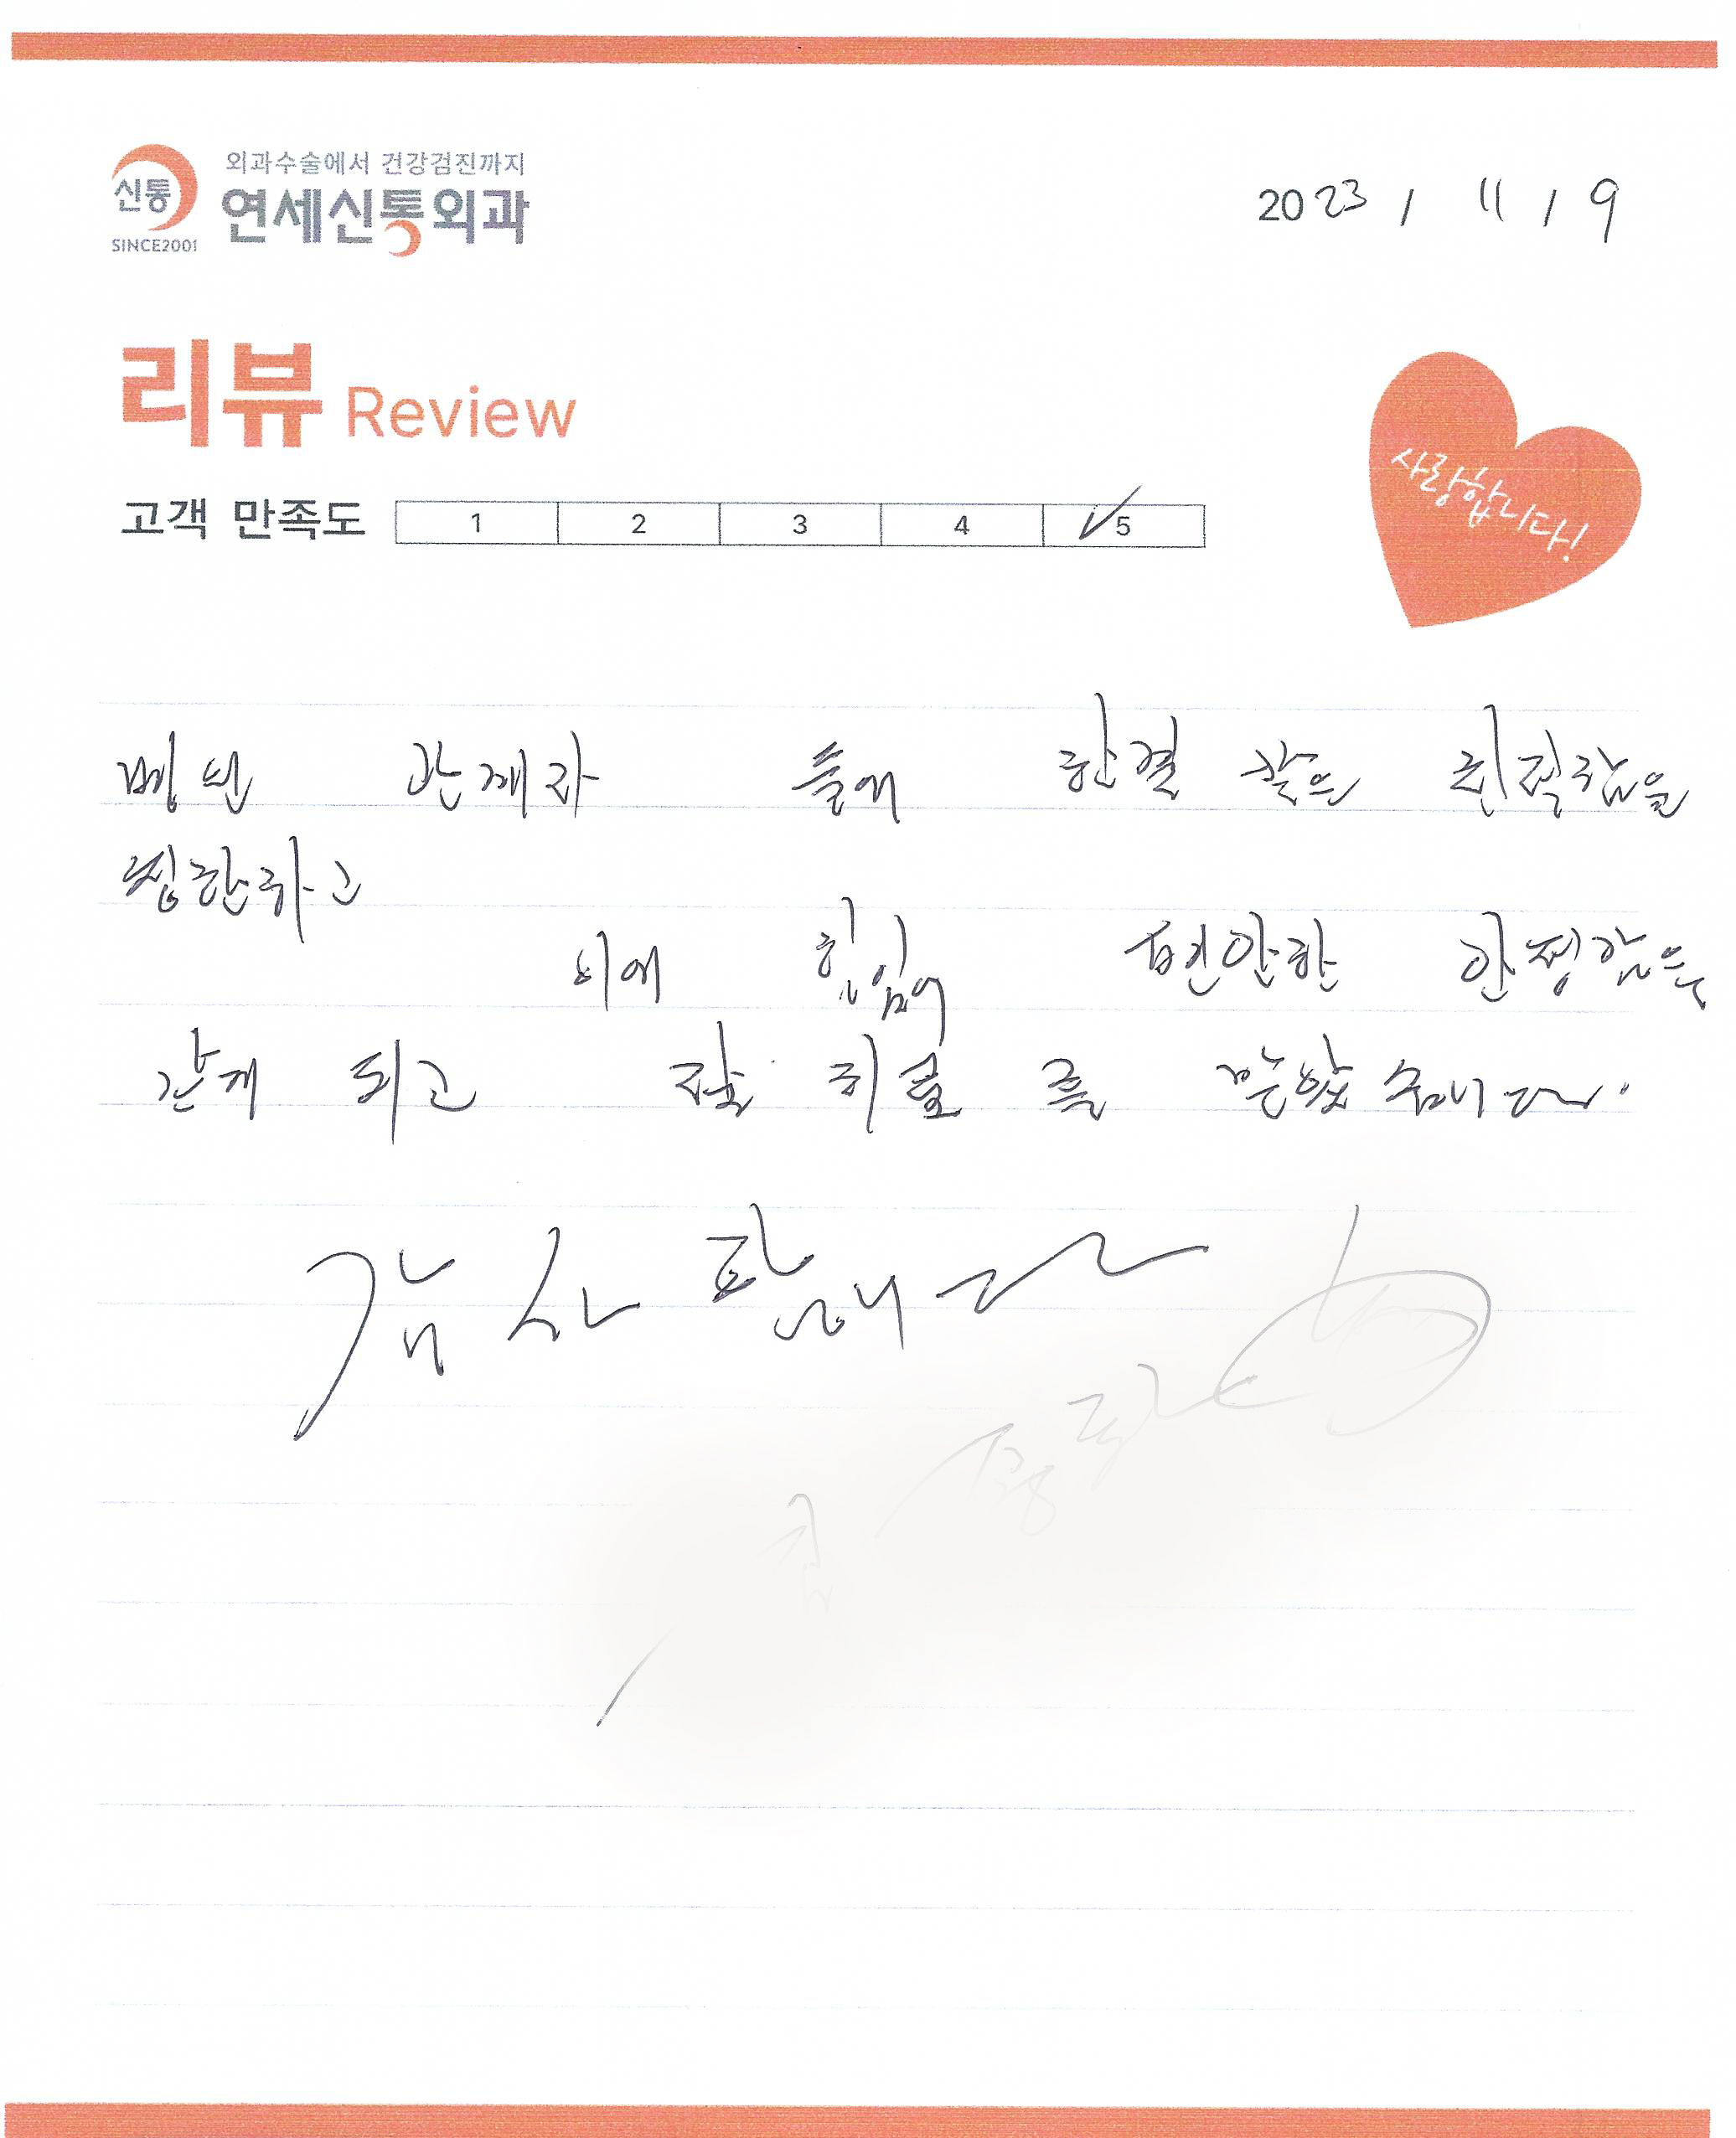 외과수술에서 건강검진까지
신통
연세신통외과
SINCE2001
2023 / 11 / 9
리뷰 Review
사랑합니다!
고객 만족도 1 2 3 4 5
병원 관계자 들에 한결 같은 친절함을
하고
이에 힘입어 편안한 안정감을
갖게 되고 잘 치료 를 받았습니다.
감사합니다